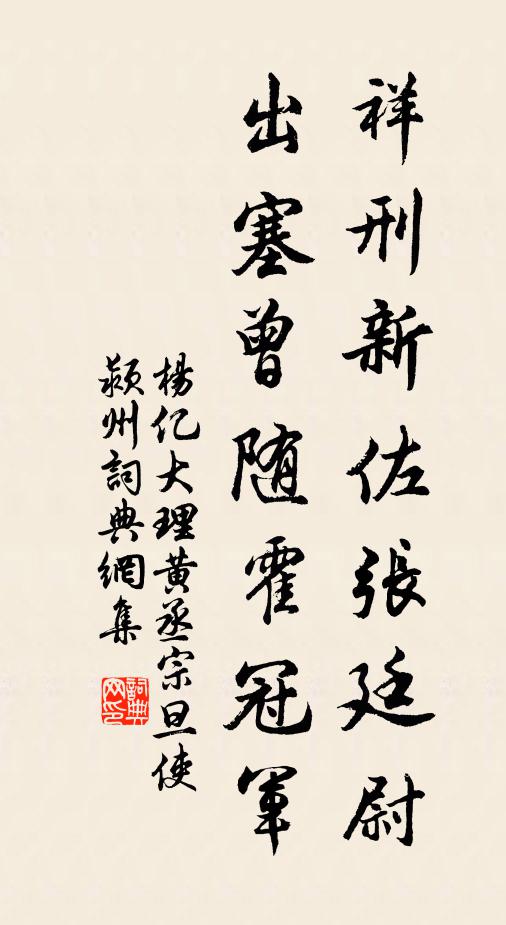 祥刑新佐張廷尉
出塞曾随霍冠軍
楊亿大理黄丞宗旦使
潁州詞典網集
詞典網印